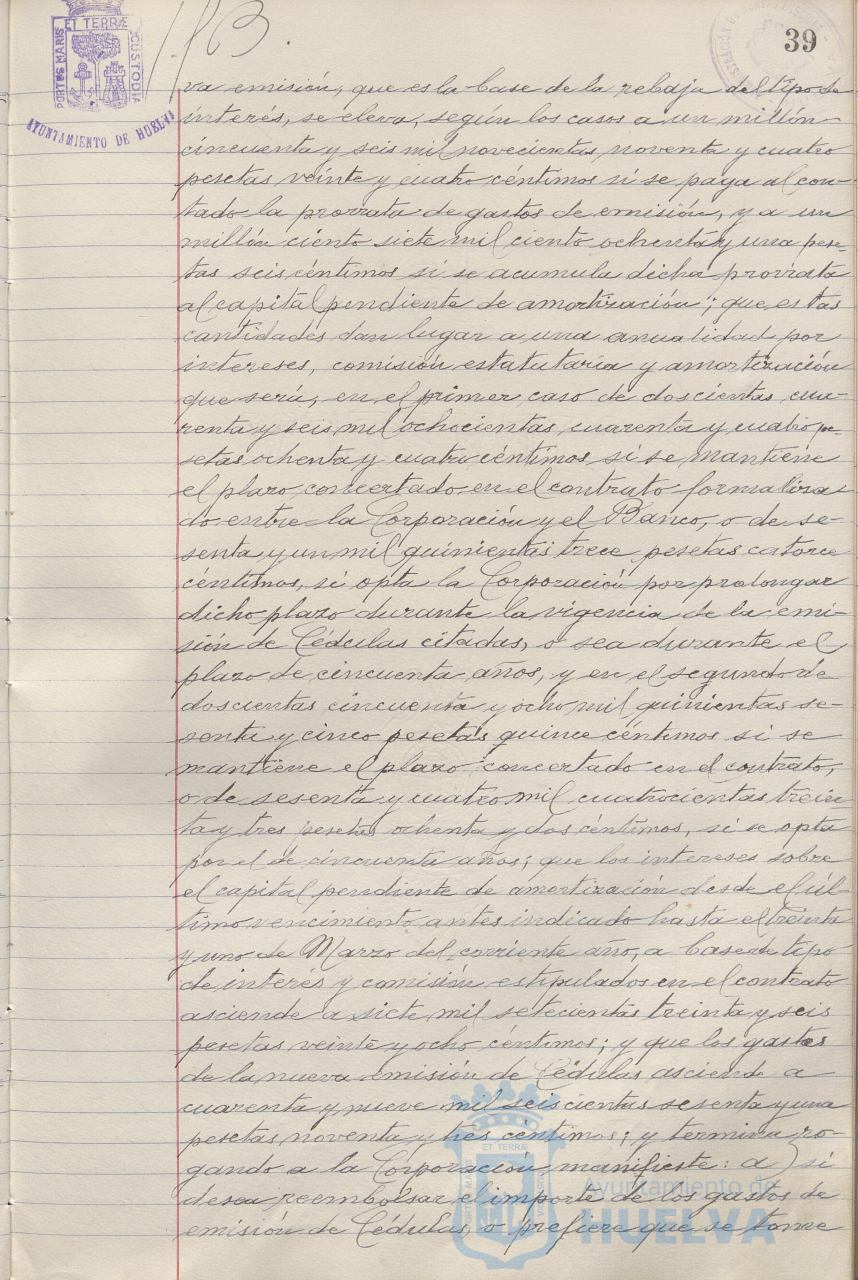 PORTUS MARIS ET TERRÆ CUSTODIA
AYUNTAMIENTO DE HUELVA
39
va emisión, que es la base de la rebaja del tipo de
interés, se eleva, según los casos a un millón
cincuenta y seis mil novecientas noventa y cuatro
pesetas veinte y cuatro céntimos si se paga al con-
tado la prorrata de gastos de emisión, y a un
millón ciento siete mil ciento ochenta y una pese-
tas seis céntimos si se acumula dicha prorrata
al capital pendiente de amortización; que estas
cantidades dan lugar a una anualidad por
intereses, comisión estatutaria y amortización
que será, en el primer caso de doscientas cua-
renta y seis mil ochocientas cuarenta y cuatro pe-
setas ochenta y cuatro céntimos, si se mantiene
el plazo concertado en el contrato formaliza
do entre la Corporación y el Banco, o de se-
senta y un mil quinientas trece pesetas catorce
céntimos, si opta la Corporación por prolongar
dicho plazo durante la vigencia de la emi-
sión de Cédulas citadas, o sea durante el
plazo de cincuenta años, y en el segundo de
doscientas cincuenta y ocho mil quinientas se-
senta y cinco pesetas quince céntimos si se
mantiene el plazo concertado en el contrato,
o de sesenta y cuatro mil cuatrocientas trein
ta y tres pesetas ochenta y dos céntimos, si se opta
por el de cincuenta años; que los intereses sobre
el capital pendiente de amortización desde el úl-
timo vencimiento antes indicado hasta el treinta
y uno de Marzo del corriente año, a base de tipo
de interés y comisión estipulados en el contrato
asciende a siete mil setecientas treinta y seis
pesetas veinte y ocho céntimos; y que los gastos
de la nueva emisión de Cédulas asciende a
cuarenta y nueve mil seiscientas sesenta y una
pesetas noventa y tres céntimos; y termina ro-
gando a la Corporación manifieste: a) si
desea reembolsar el importe de los gastos de
emisión de Cédulas, o prefiere que se tome
Ayuntamiento de
HUELVA